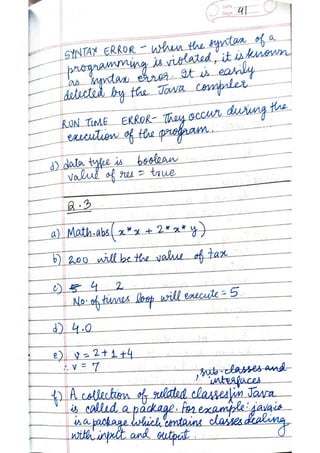 Date
Page 41
SYNTAX ERROR - When the syntax of a
programming is violated, it is known
as syntax error. It is easily
detected by the Java compiler.
RUN TIME ERROR - They occur during the
execution of the program.
j) data type is boolean
value of res = true
Q.3
a) Math.abs(x*x + 2*x*y)
b) 200 will be the value of tax
c) 4 2
No. of times loop will execute = 5
d) 4.0
e) v = 2+1+4
∴ v = 7
, sub-classes and
interfaces
f) A collection of related classes in Java
is called a package. For example: java.io
is a package which contains classes dealing
with input and output.